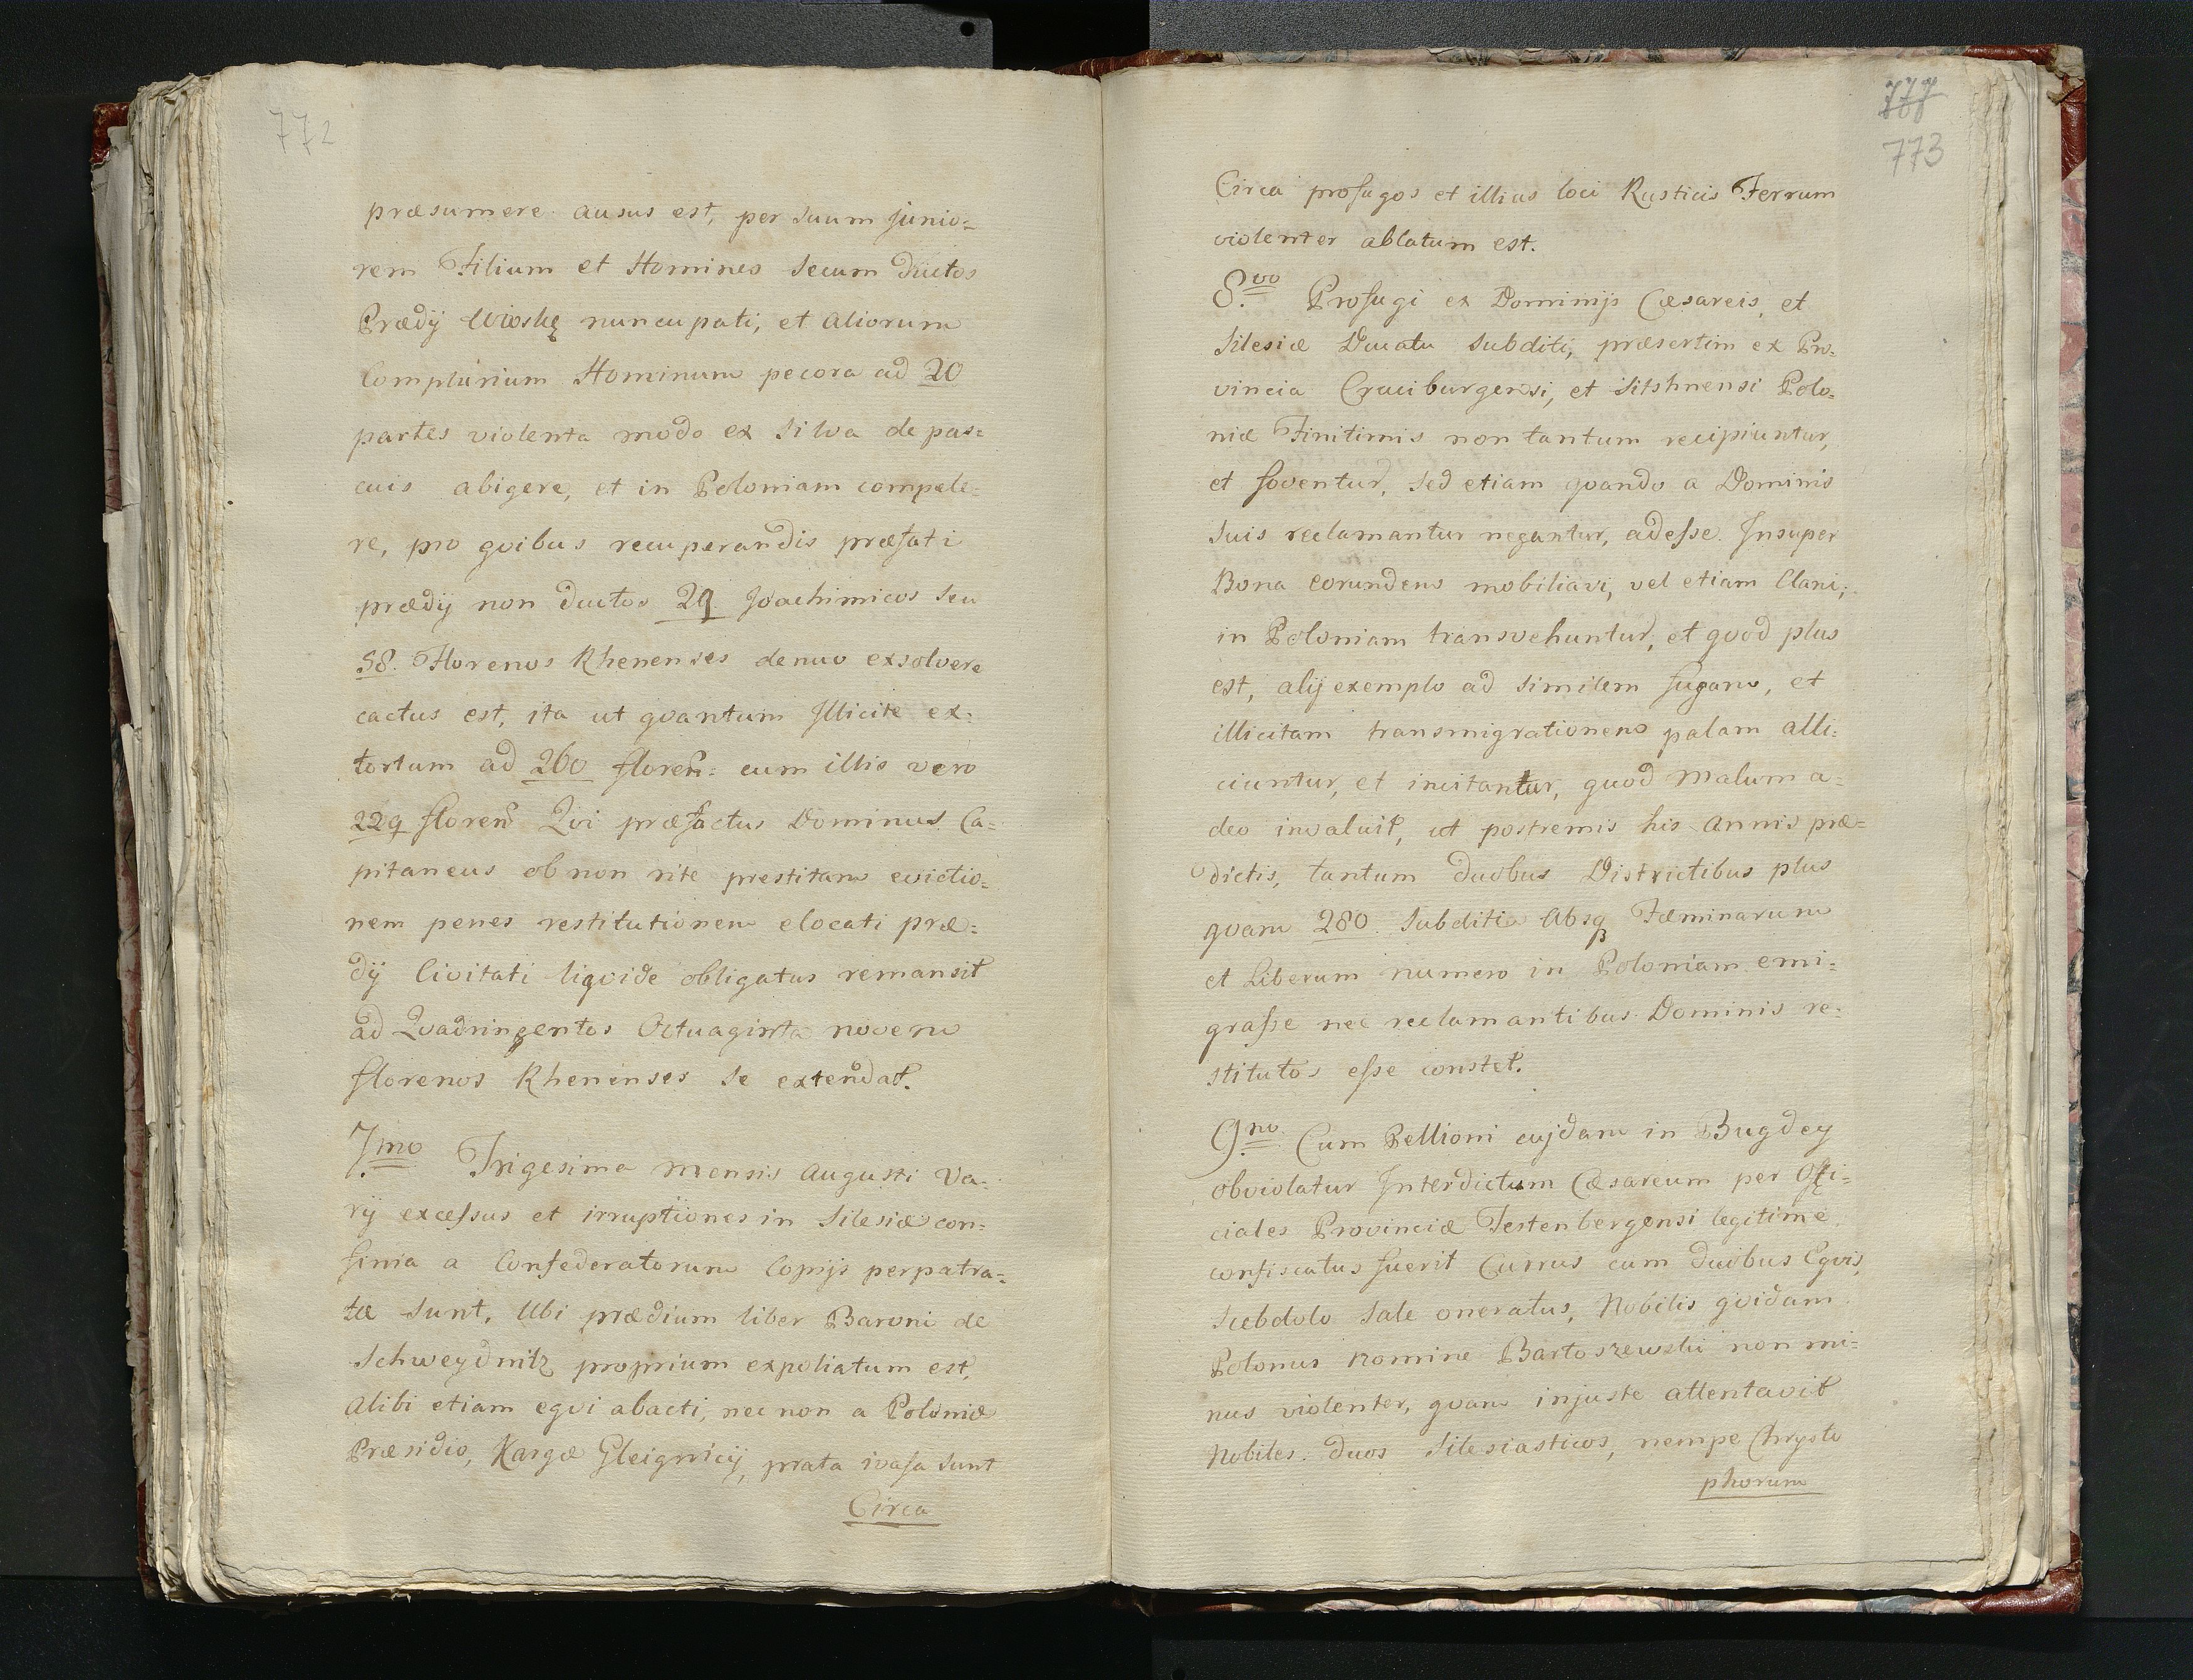 772
præsumere ausus est, per suum junio=
rem Filium et Homines secum ductos
Prædij Wioskę nuncupati, et aliorum
Complurium Hominum pecora ad 20
partes violenta modo ex Silva de pas=
cuis abigere, et in Poloniam compele=
re, pro qvibus recuperandis præfati
prædij non ductos 29. Joachimicos seu
58. Florenos Rhenenses denuo exsolvere
cactus est, ita ut qvantum Illicite ex=
tortum ad 260 floren= cum illis vero
229 floren Qvi præfactus Dominus Ca=
pitaneus ob non rite prestitam evictio=
nem penes restitutionem elocati præ=
dij Civitati liqvide obligatus remansit
ad Qvadringentos Octuaginta novem
florenos Rhenenses se extendat.
7.mo Trigesima mensis Augusti Va=
rij excessus et irruptiones in Silesiæ con=
finia a Confederatorum Copijs perpatra=
tæ sunt, Ubi prædium liber Baroni de
Schweydnitz proprium expoliatum est,
Alibi etiam eqvi abacti, nec non a Poloniæ
Præsidio, Kargæ Gleignicij, prata ivasa sunt
Circa
777
773
Circa profugos et illius loci Rusticis Ferrum
violenter ablatum est.
8.vo Profugi ex Dominijs Cæsareis, et
Silesiæ Ducatu subditi, præsertim ex Pro=
vincia Cruciburgensi, et Sitshnensi Polo=
niæ Finitimis non tantum recipiuntur,
et foventur, sed etiam qvando a Dominis
suis reclamantur negantur, adesse. Insuper
Bona eorundem mobiliavi, vel etiam Clani,
in Poloniam transvehuntur, et qvod plus
est, alij exemplo ad similem fugam, et
illicitam transmigrationem palam alli=
ciuntur, et incitantur, quod malum a=
deo invaluit, ut postremis his annis præ=
dictis, tantum duobus Districtibus plus
qvam 280. Subditis Absq Fæminarum
et Liberum numero in Poloniam emi=
grasse nec reclamantibus Dominis re=
stitutos esse constet.
9.no Cum Pellioni cujdam in Bugdey
obviolatur Interdictum Cæsareum per Offi=
ciales Provinciæ Testenbergensi legitime
confiscatus fuerit Currus cum duobus Eqvis,
Scebdolo Sale oneratus, Nobilis qvidam
Polonus nomine Bartoszewski non mi=
nus violenter, qvam injuste attentavit
Nobiles duos Silesiasticos, nempe Chrysto
phorum